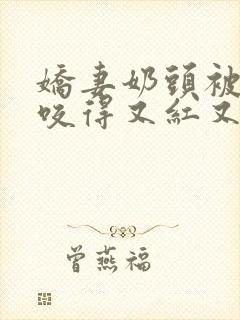 嬌妻奶頭被
咬得又紅又
曾燕福